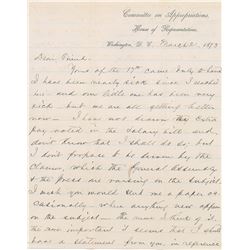 Committee on Appropriations,
House of Representatives,
Washington, D. C. March 21, 1873
Dear Friend.
Yours of the 17th came duly to hand
I had been nearly sick since I
and our little one has been very
sick but we are all getting better
now — I have not drawn the extra
pay voted in the salary bill and
don't know that I shall do so; but
I don't propose to be driven by the
clamor, which the General Assembly
& the press are making on the subject
I wish you would send me papers oc-
casionally when anything new appears
on the subject — the more I think of it
the more important it seems that I should
have a statement from you, in reference